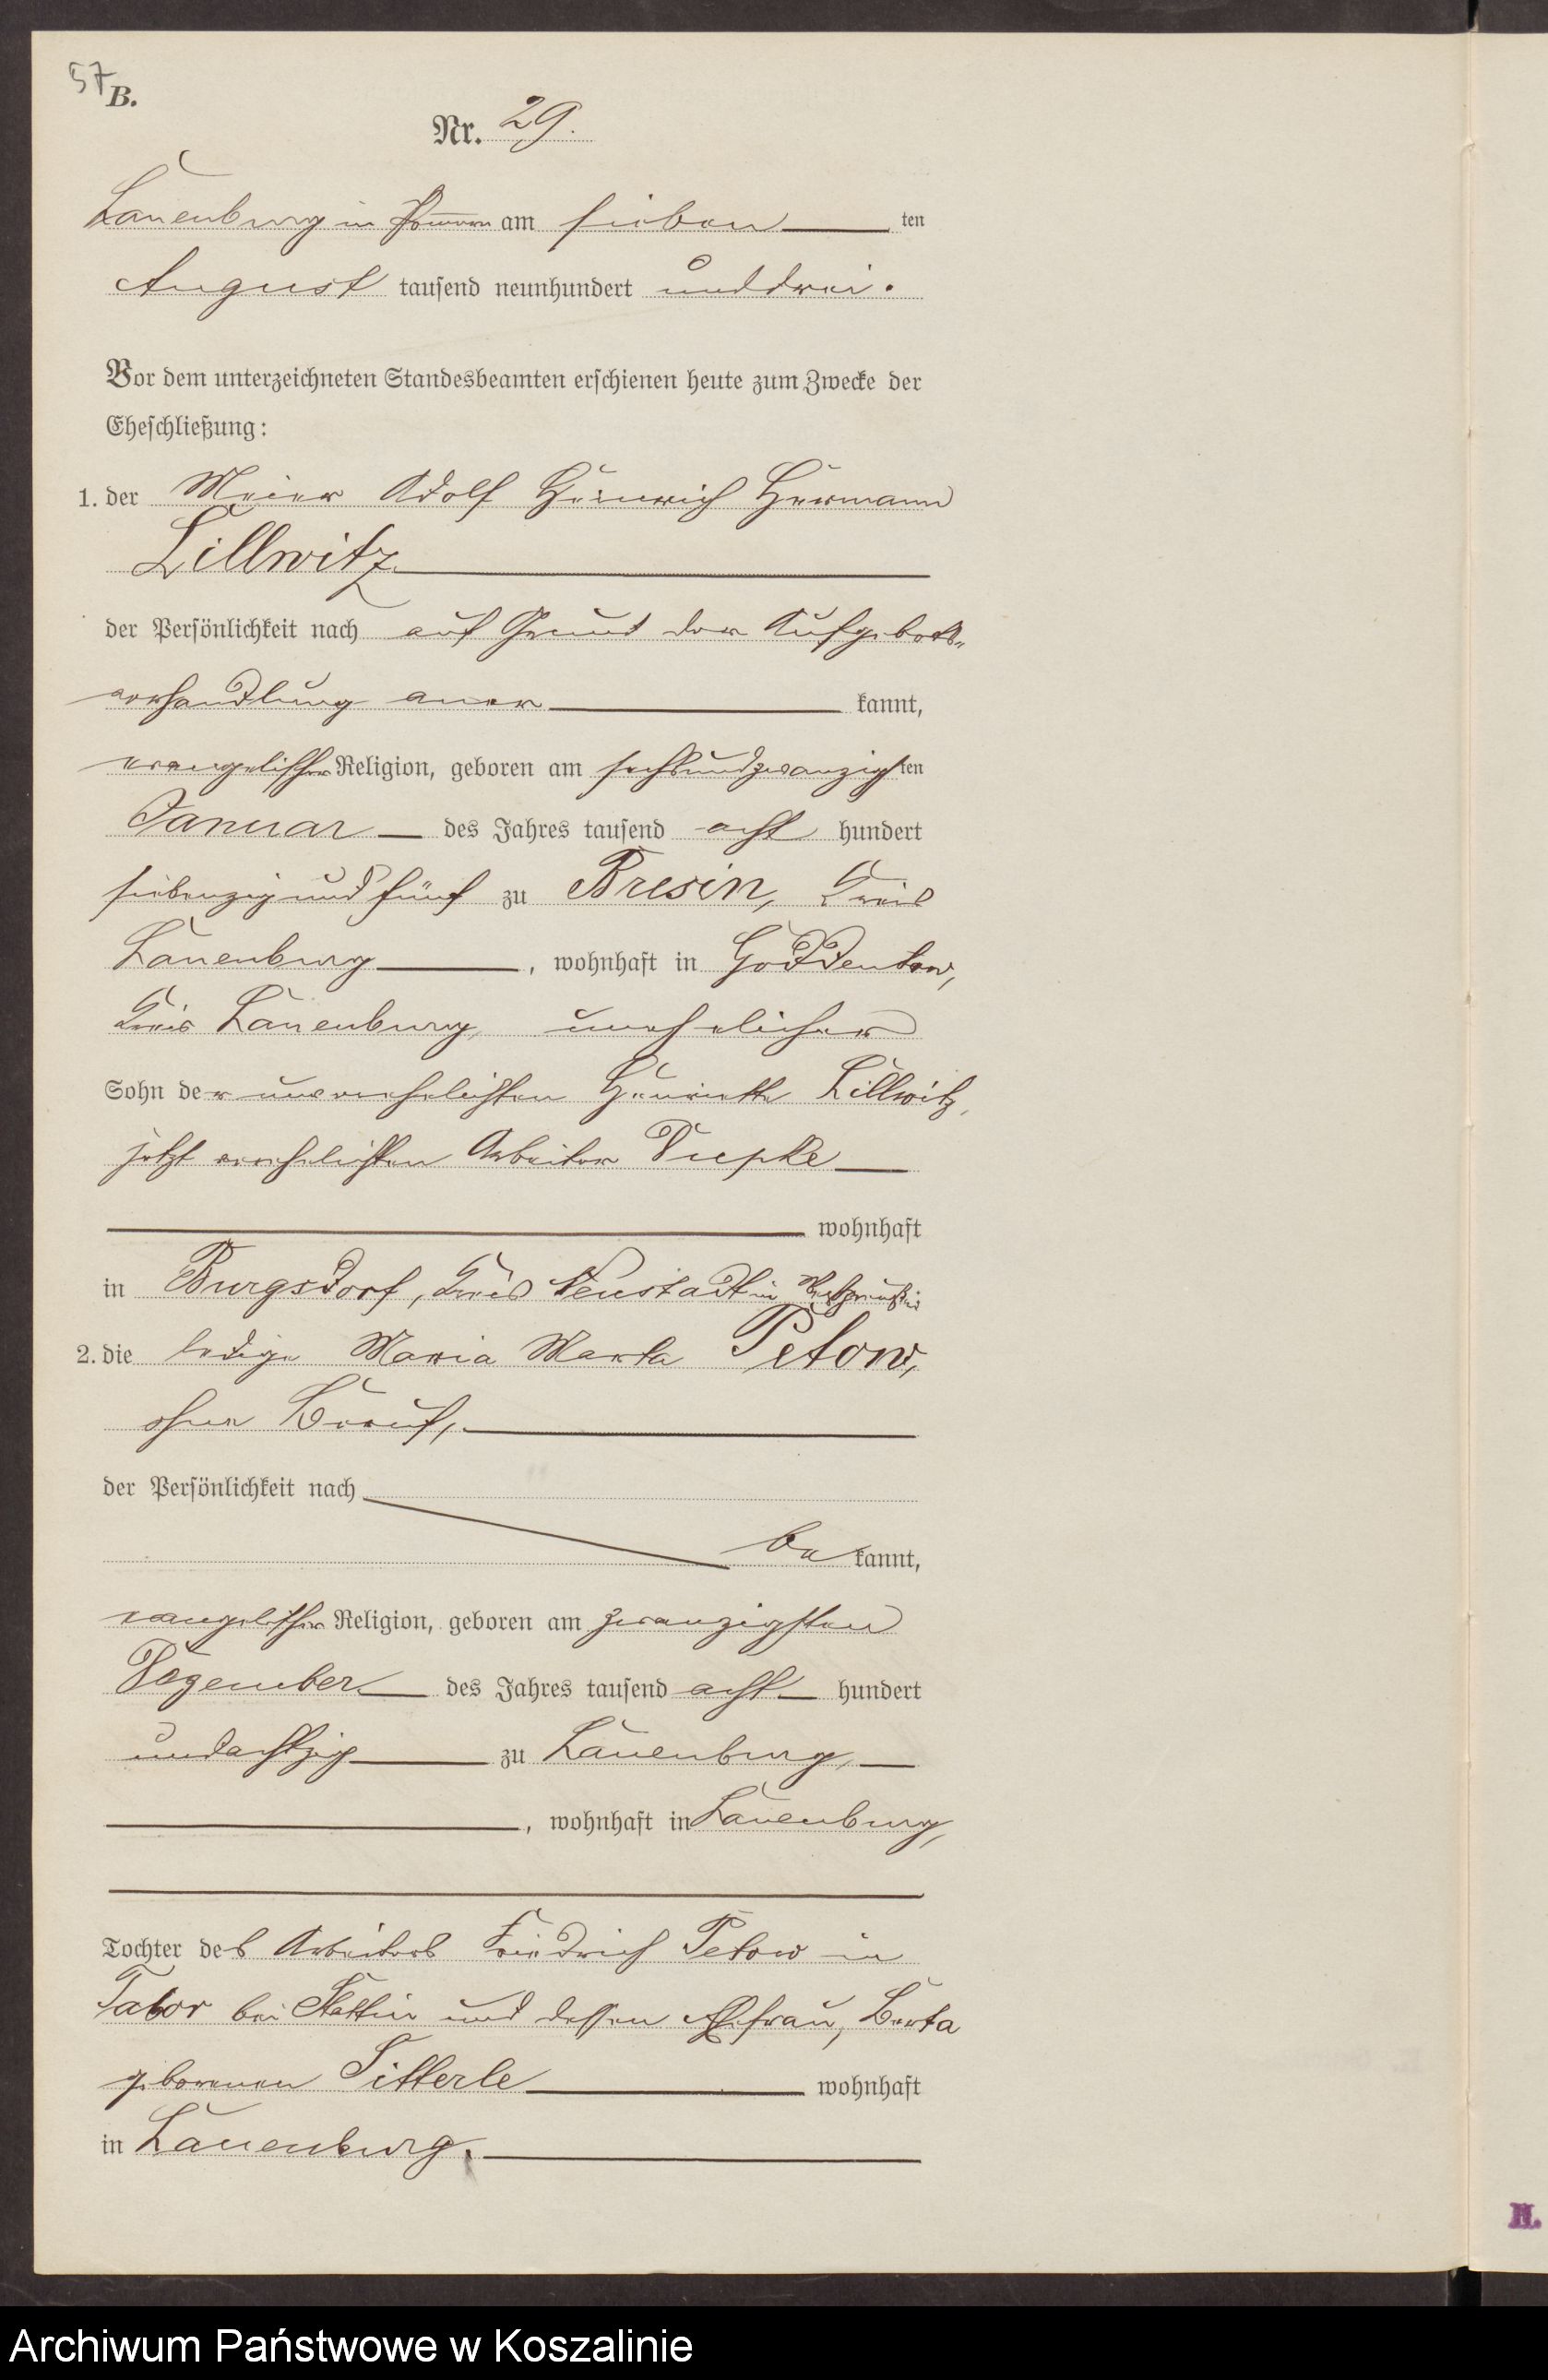 57
B.
Nr. 29.
Lauenburg in Pommern am sieben ten
August tausend neunhundert und drei.
Vor dem unterzeichneten Standesbeamten erschienen heute zum Zwecke der
Eheschließung:
1. der Meier Adolf Heinrich Hermann
Lillwitz
der Persönlichkeit nach auf Grund der Aufgebots-
verhandlung aner kannt,
evangelischer Religion, geboren am sechsundzwanzigsten
Januar des Jahres tausend acht hundert
siebenzig und fünf zu Bresin, Kreis
Lauenburg, wohnhaft in Goddentow,
Kreis Lauenburg, unehelicher
Sohn der unverehelichten Henriette Lillwitz,
jetzt verehelichten Arbeiter Piepke
wohnhaft
in Burgsdorf, Kreis Neustadt in Westpreußen
2. die ledige Maria Marta Petow,
ohne Beruf,
der Persönlichkeit nach
be kannt,
evangelischer Religion, geboren am zwanzigsten
Dezember des Jahres tausend acht hundert
und achtzig zu Lauenburg,
, wohnhaft in Lauenburg,
Tochter des Arbeiters Friedrich Petow in
Tabor bei Stettin und dessen Ehefrau, Berta
geborenen Titterle wohnhaft
in Lauenburg.
II.
Archiwum Państwowe w Koszalinie